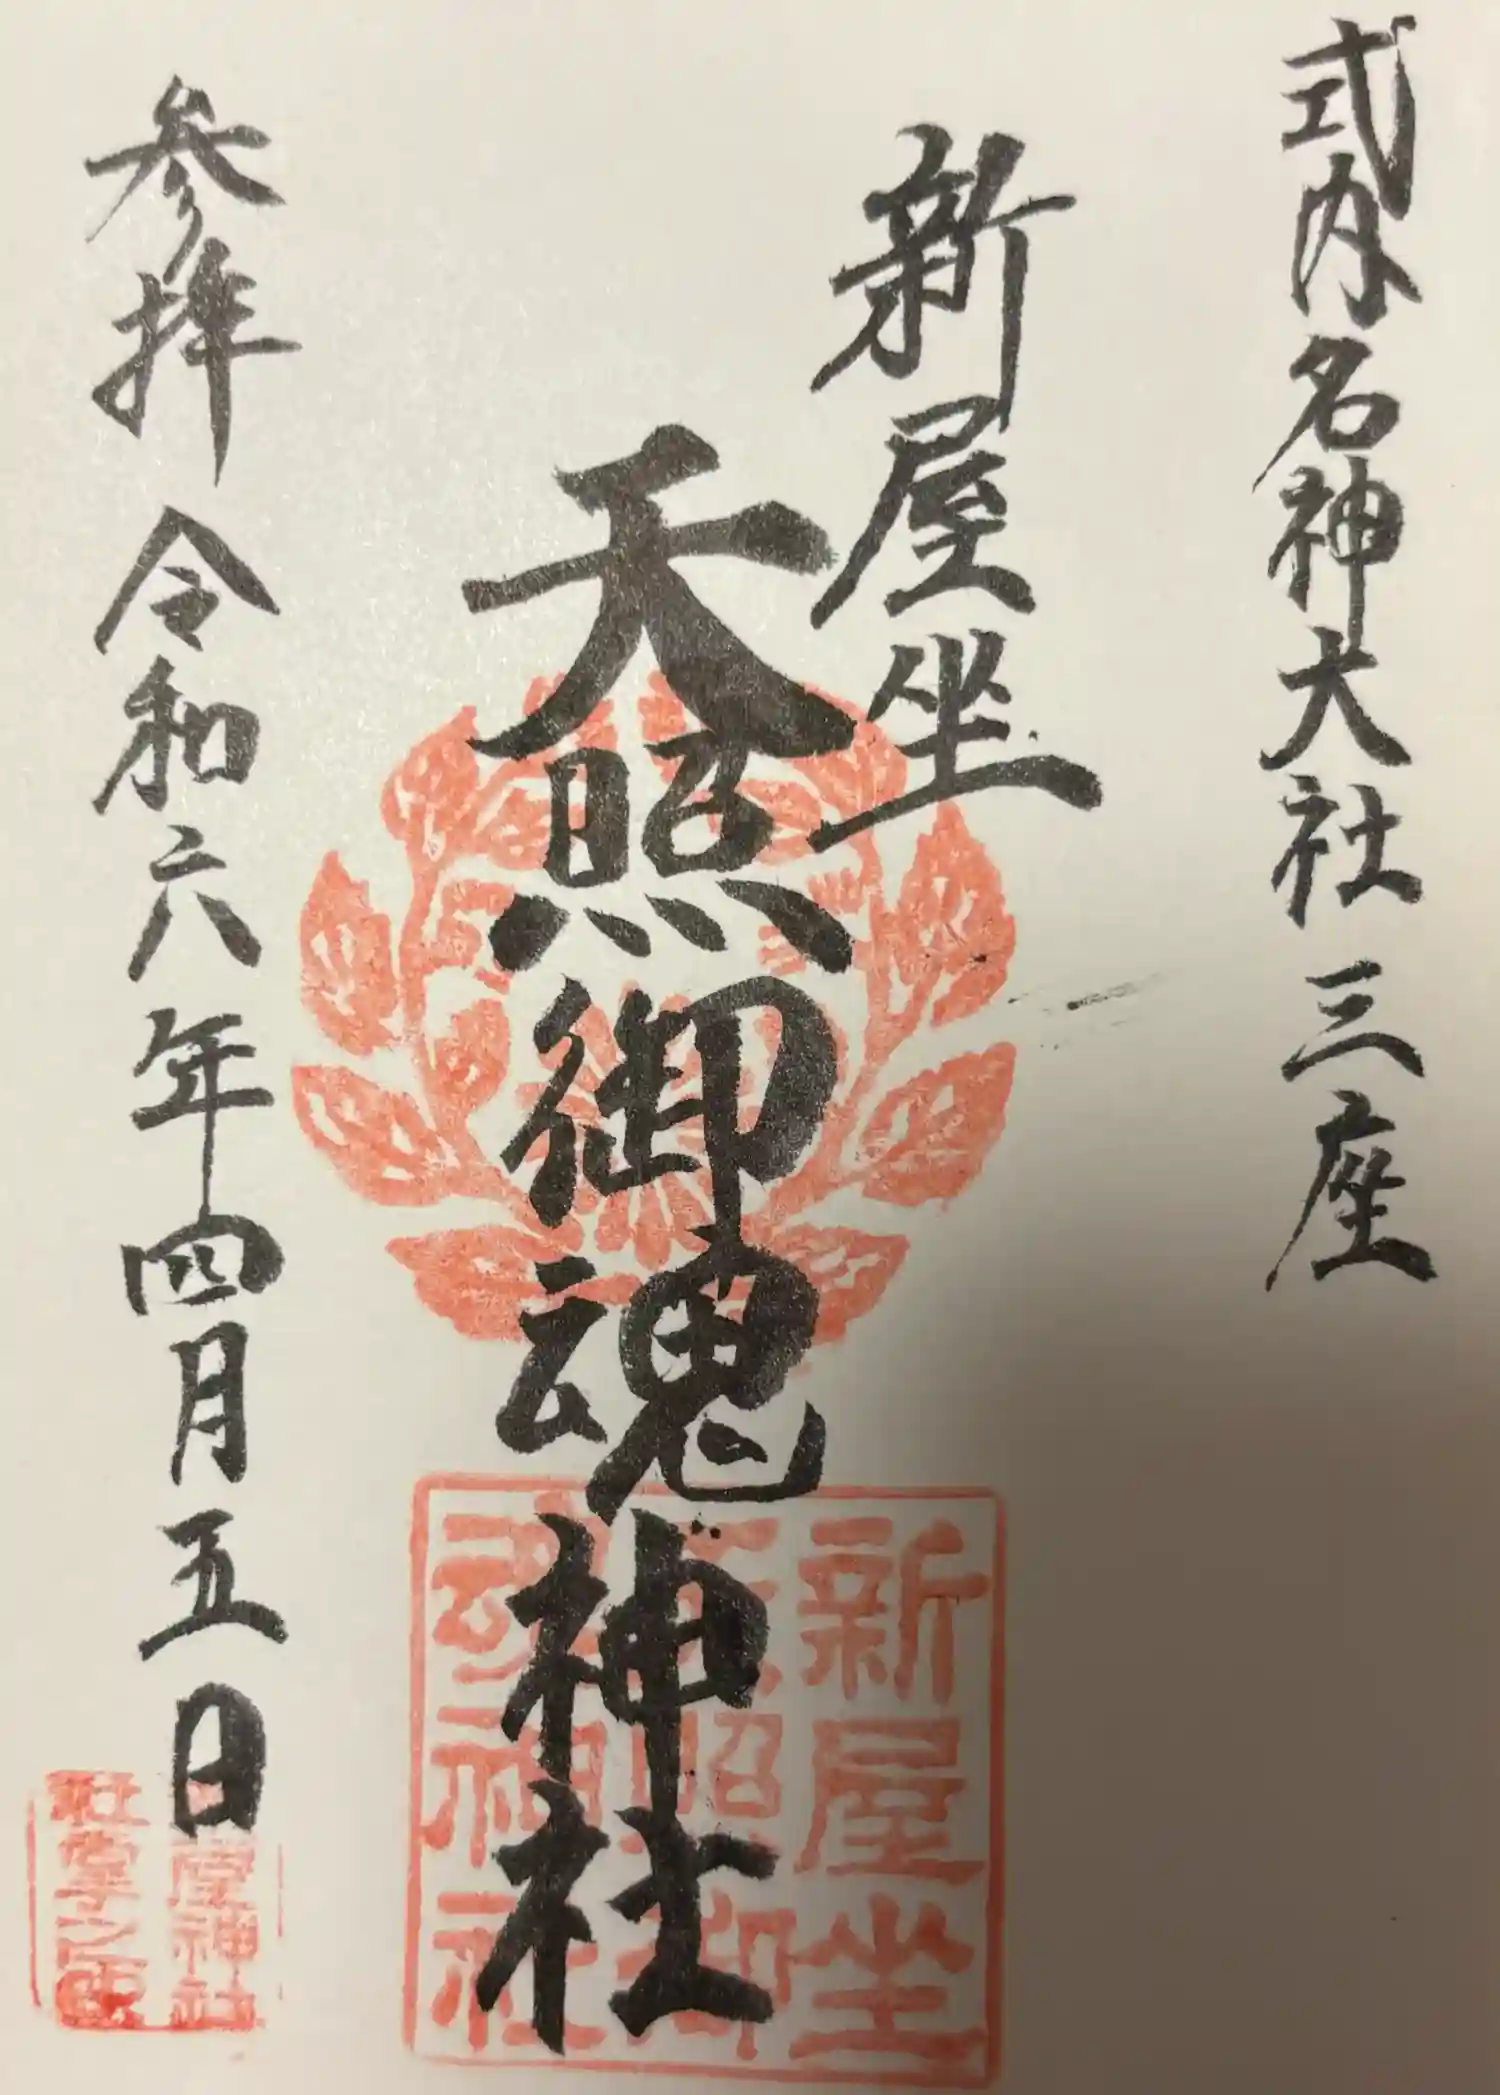 式内名神大社 三座
新屋坐
天照御魂神社
参拝 令和六年四月五日
新屋坐
天照御
魂神社